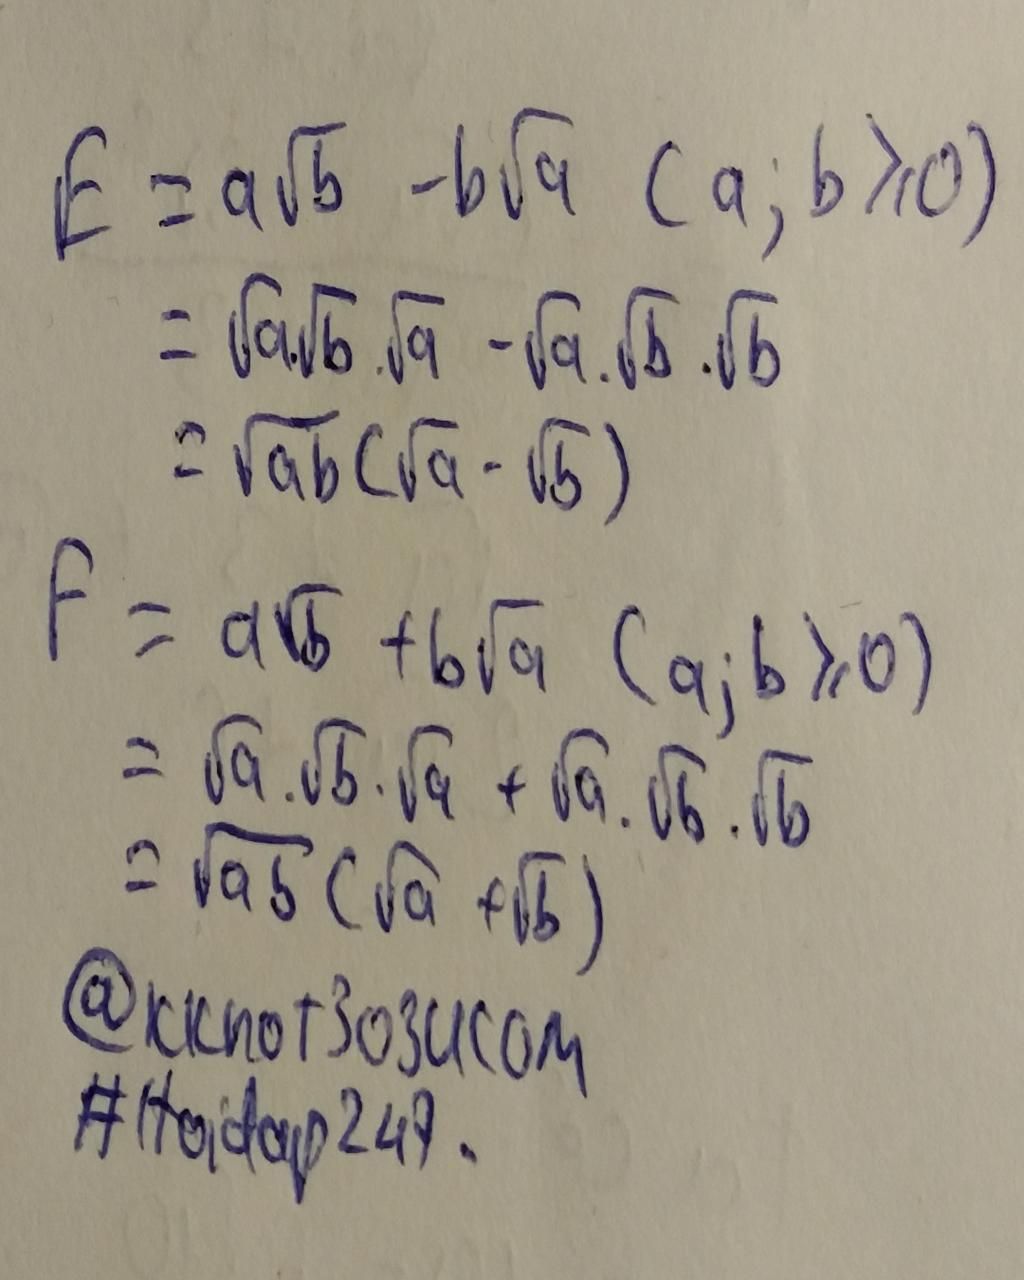 E = a√b - b√a (a; b ⩾ 0)
= √a.√b.√a - √a.√b.√b
= √ab(√a - √b)
F = a√b + b√a (a; b ⩾ 0)
= √a.√b.√a + √a.√b.√b
= √ab(√a + √b)
@kknot303ucom
#Hoidap247.